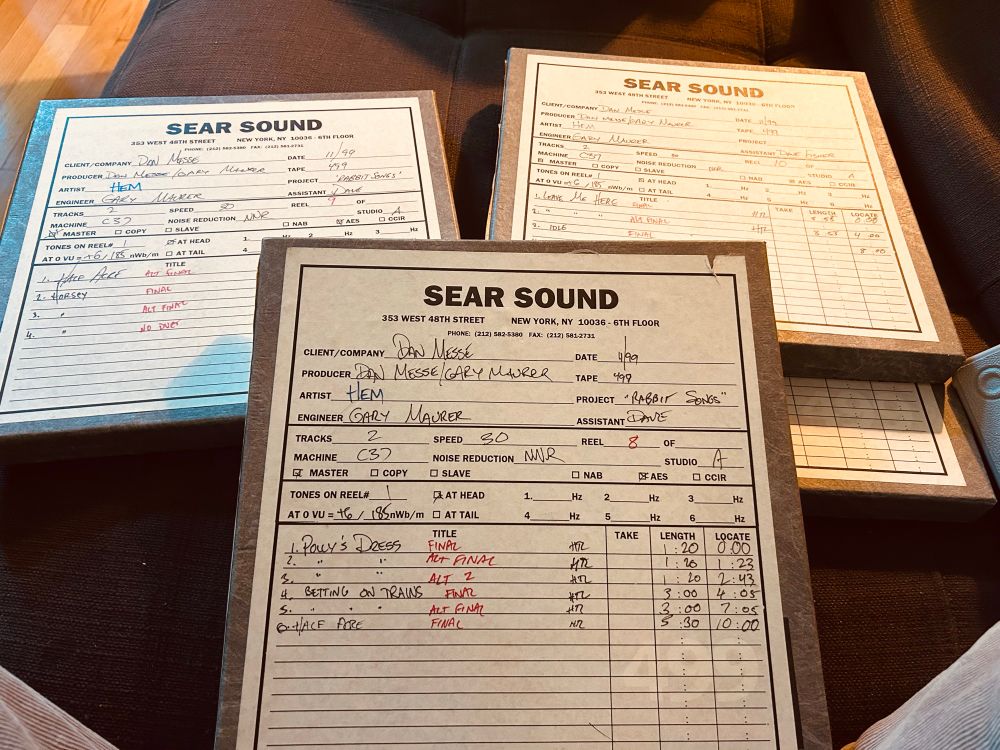 SEAR SOUND
353 WEST 48TH STREET NEW YORK, NY 10036 - 6TH FLOOR
PHONE: (212) 582-5380 FAX: (212) 581-2731
CLIENT/COMPANY DAN MESSE
DATE 11/99
PRODUCER DAN MESSE/GARY MAURER
TAPE 499
ARTIST HEM
PROJECT "RABBIT SONGS"
ENGINEER GARY MAURER
ASSISTANT DAVE
TRACKS 2 SPEED 30 REEL 9 OF
MACHINE C37 NOISE REDUCTION NNR STUDIO A
MASTER COPY SLAVE NAB AES CCIR
TONES ON REEL# 1 AT HEAD 1. 2 Hz 3 Hz
AT 0 VU = +6/185 nWb/m AT TAIL 4
TITLE
1. HALF ACRE ALT FINAL
2. HORSEY FINAL
3. " ALT FINAL
4. " NO DUET
SEAR SOUND
353 WEST 48TH STREET NEW YORK, NY 10036 - 6TH FLOOR
PHONE: (212) 582-5380 FAX: (212) 581-2731
CLIENT/COMPANY DAN MESSE
PRODUCER DAN MESSE/GARY MAURER DATE 11/99
ARTIST HEM TAPE 499
PROJECT
ENGINEER GARY MAURER ASSISTANT DAVE
TRACKS 2 SPEED 30 REEL 10 OF
MACHINE C37 NOISE REDUCTION STUDIO A
MASTER COPY SLAVE NAB AES CCIR
TONES ON REEL# 1 AT HEAD
AT 0 VU = +6/185 nWb/m AT TAIL
TITLE TAKE LENGTH LOCATE
1. LEAVE ME HERE FINAL HR
2. " " ALT FINAL
3. IDLE FINAL HR 4:00
SEAR SOUND
353 WEST 48TH STREET NEW YORK, NY 10036 - 6TH FLOOR
PHONE: (212) 582-5380 FAX: (212) 581-2731
CLIENT/COMPANY DAN MESSE DATE 11/99
PRODUCER DAN MESSE/GARY MAURER TAPE 499
ARTIST HEM PROJECT "RABBIT SONGS"
ENGINEER GARY MAURER ASSISTANT DAVE
TRACKS 2 SPEED 30 REEL 8 OF
MACHINE C37 NOISE REDUCTION NNR STUDIO A
MASTER COPY SLAVE NAB AES CCIR
TONES ON REEL# 1 AT HEAD 1. Hz 2 Hz 3 Hz
AT 0 VU = +6/185 nWb/m AT TAIL 4 Hz 5 Hz 6 Hz
TITLE TAKE LENGTH LOCATE
1. POLLY'S DRESS FINAL HR 1:20 0:00
2. " " ALT FINAL HR 1:20 1:23
3. " " ALT 2 HR 1:20 2:43
4. BETTING ON TRAINS FINAL HR 3:00 4:05
5. " " " ALT FINAL HR 3:00 7:05
6. HALF ACRE FINAL HR 5:30 10:00